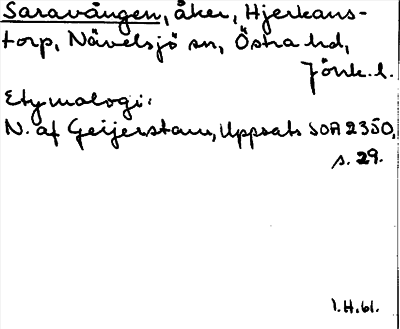 Saravången, åker, Hjerkans-
torp, Nävelsjö sn, Östra hd,
Jönk. l.
Etymologi:
N. af Geijerstam, Uppsats SOA 2350,
s. 29.
1.H.61.